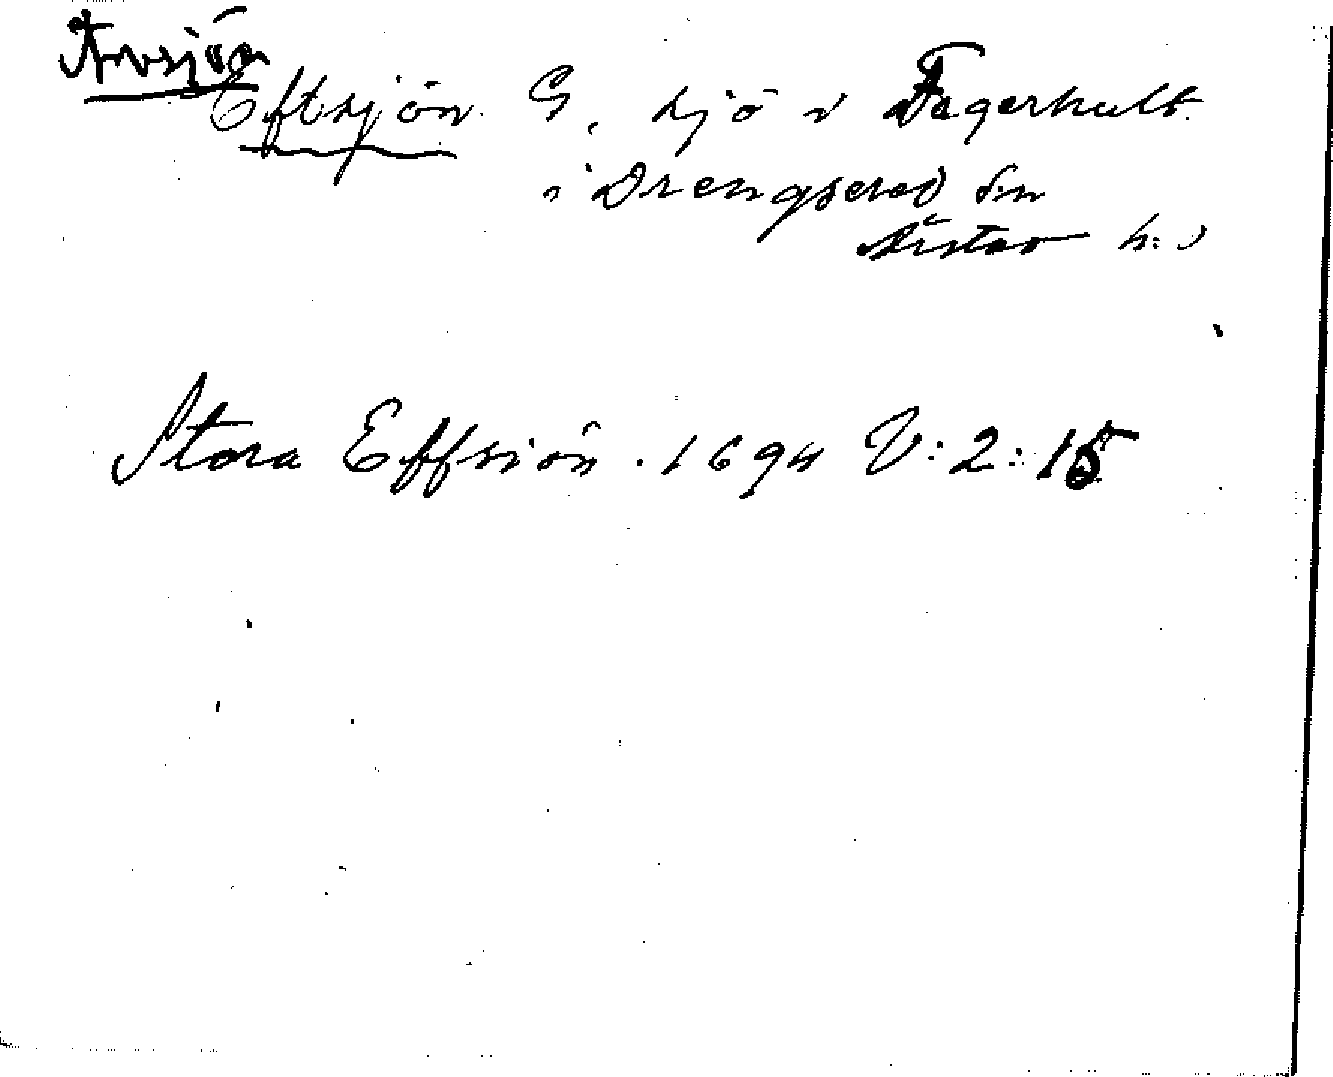 Eftsjön G. sjö v Fagerhult
i Drengsered sn
Årstad h:d
Stora Effsiön. 1694 V:2:15